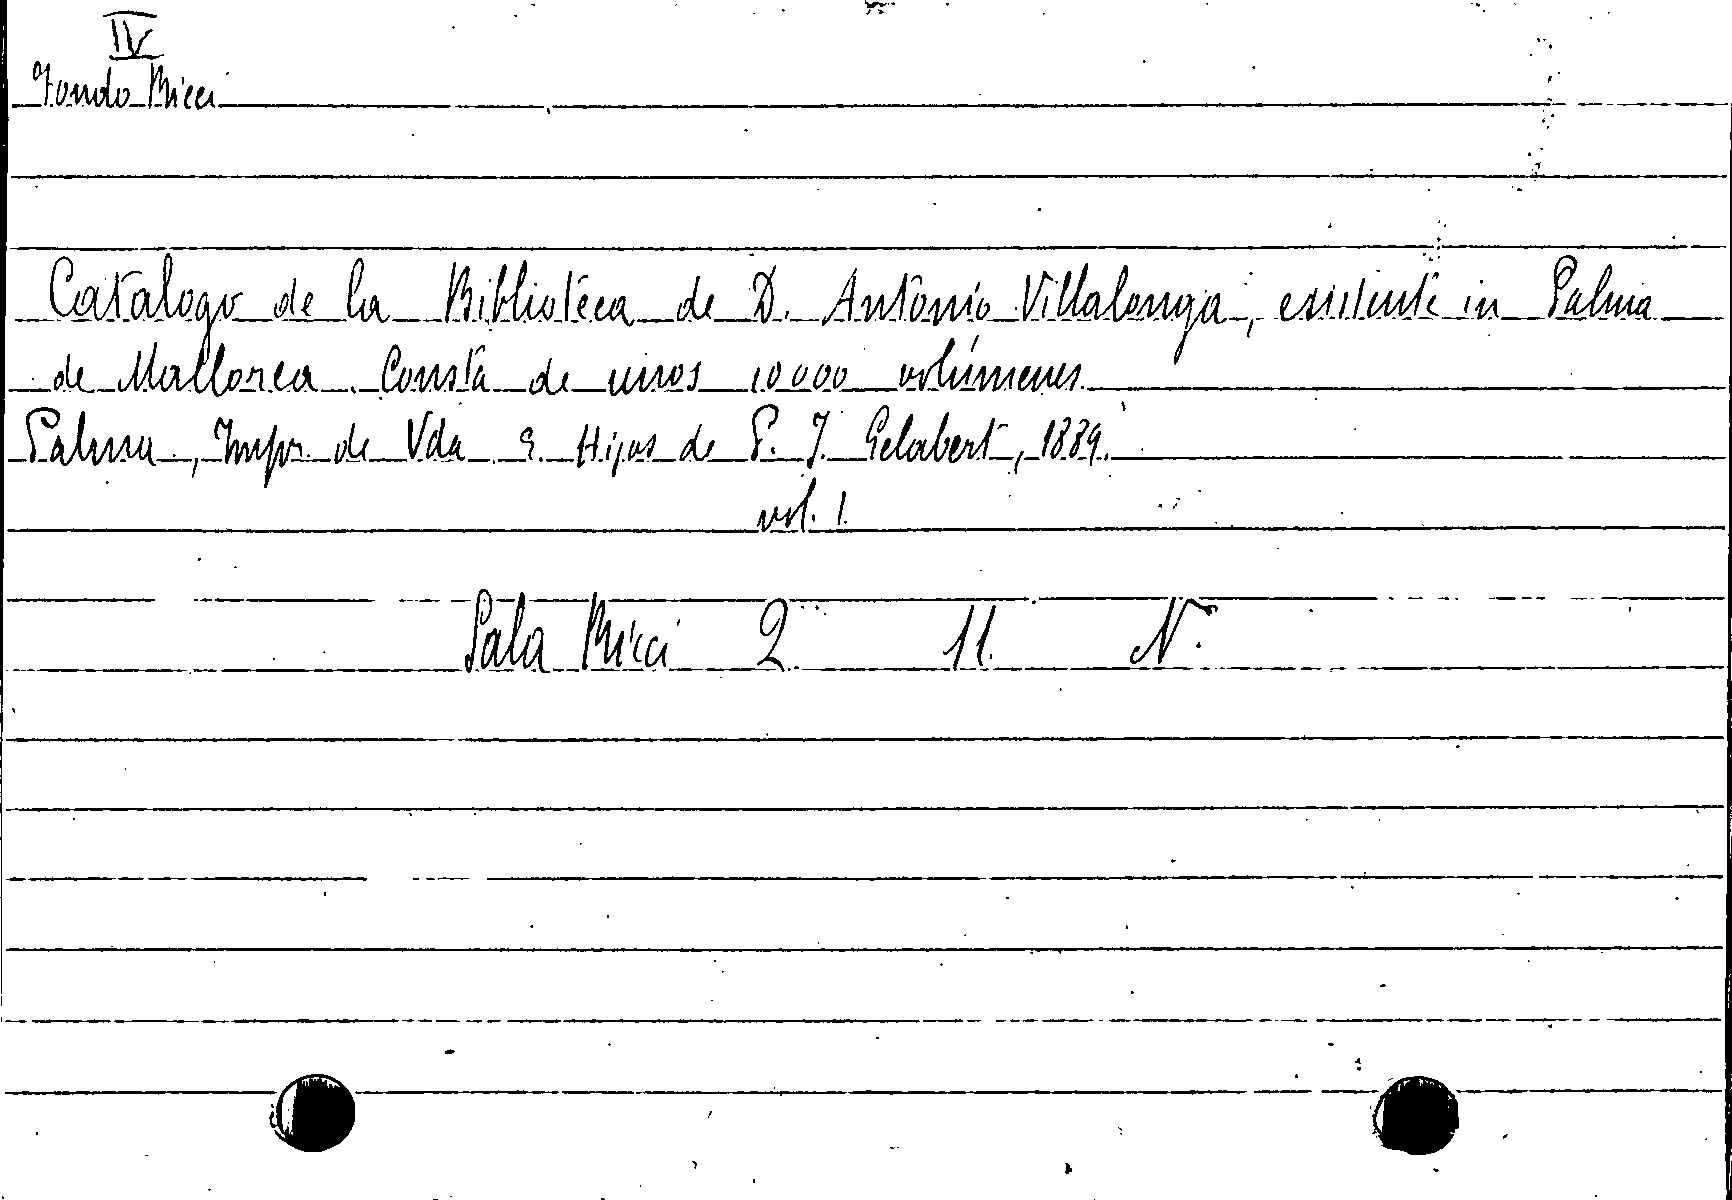 IV
Fondo Ricci
Catalogo de la Biblioteca de D. Antonio Villalonga, existente in Palma
de Mallorca. Consta de unos 10000 volúmenes.
Palma, Impr. de Vda e Hijos de P. J. Gelabert, 1889.
vol. 1.
Sala Ricci 2. 11. N.